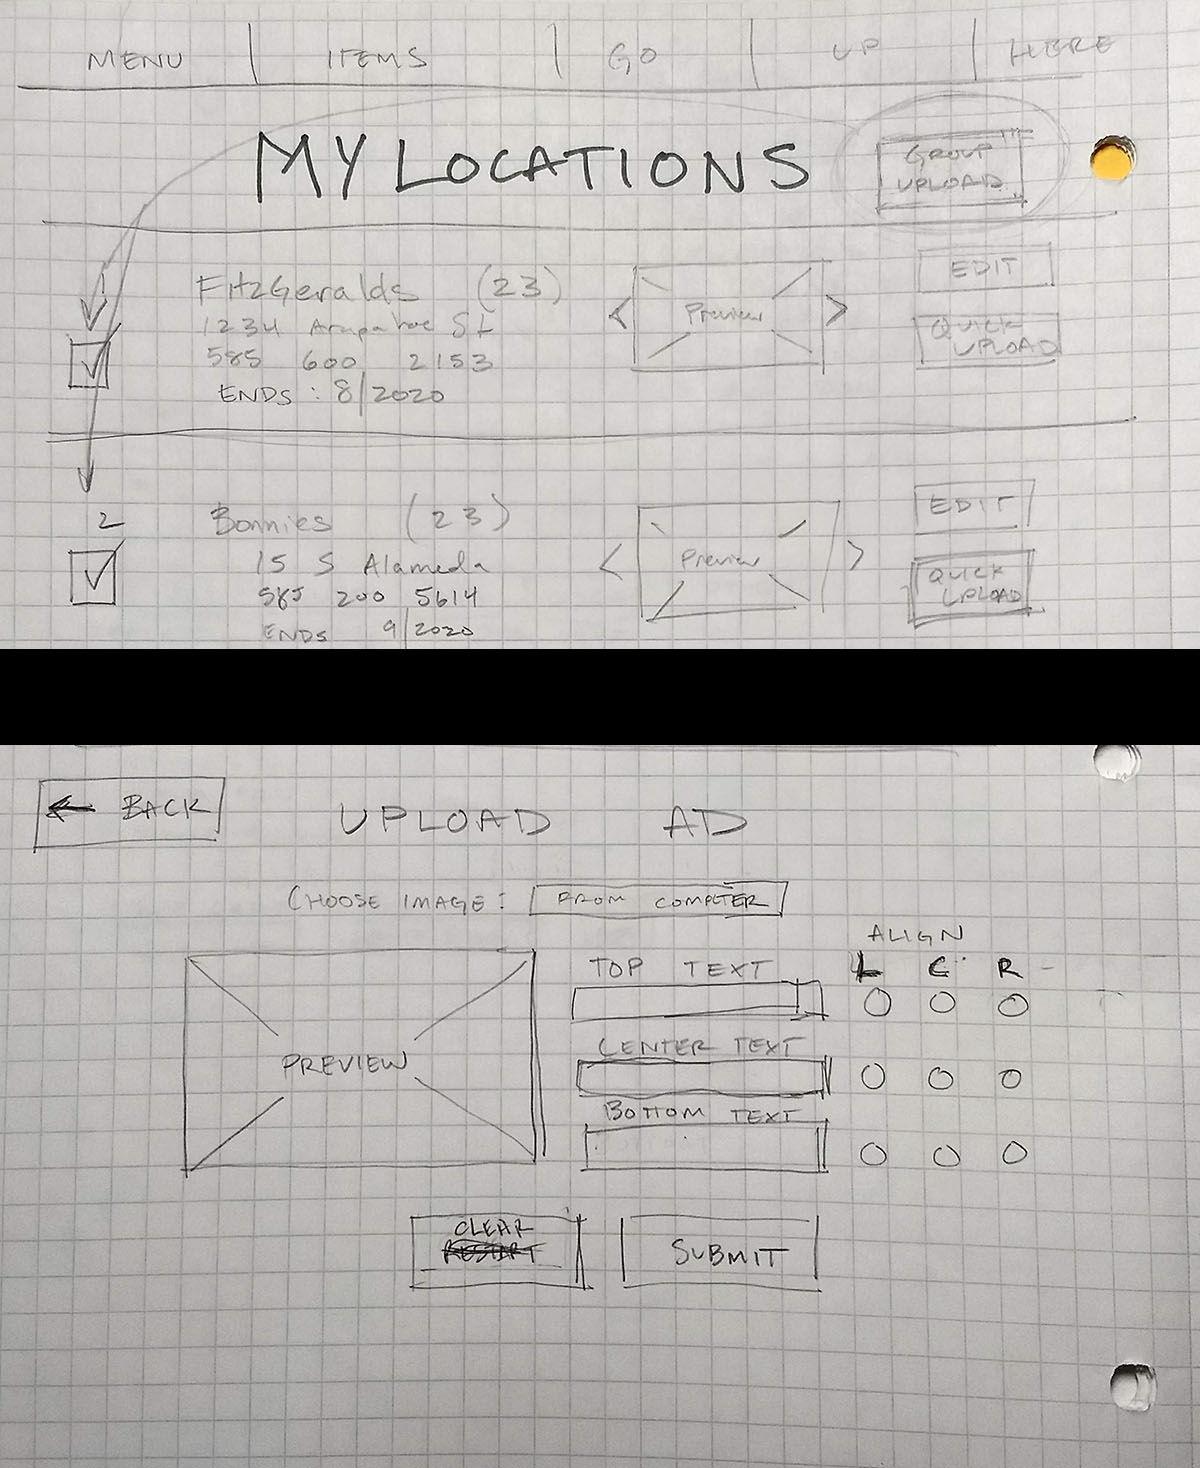 MENU | ITEMS | GO | UP | HERE
MY LOCATIONS
GROUP
UPLOAD
1
FitzGeralds (23)
1234 Arapahoe St
585 600 2153
ENDS : 8/2020
< Preview >
EDIT
QUICK
UPLOAD
2
Bonnies (23)
15 S Alameda
585 200 5614
ENDS 9/2020
< Preview >
EDIT
QUICK
UPLOAD
← BACK
UPLOAD AD
CHOOSE IMAGE: FROM COMPUTER
PREVIEW
ALIGN
L C R
TOP TEXT
CENTER TEXT
BOTTOM TEXT
CLEAR
RESTART
SUBMIT